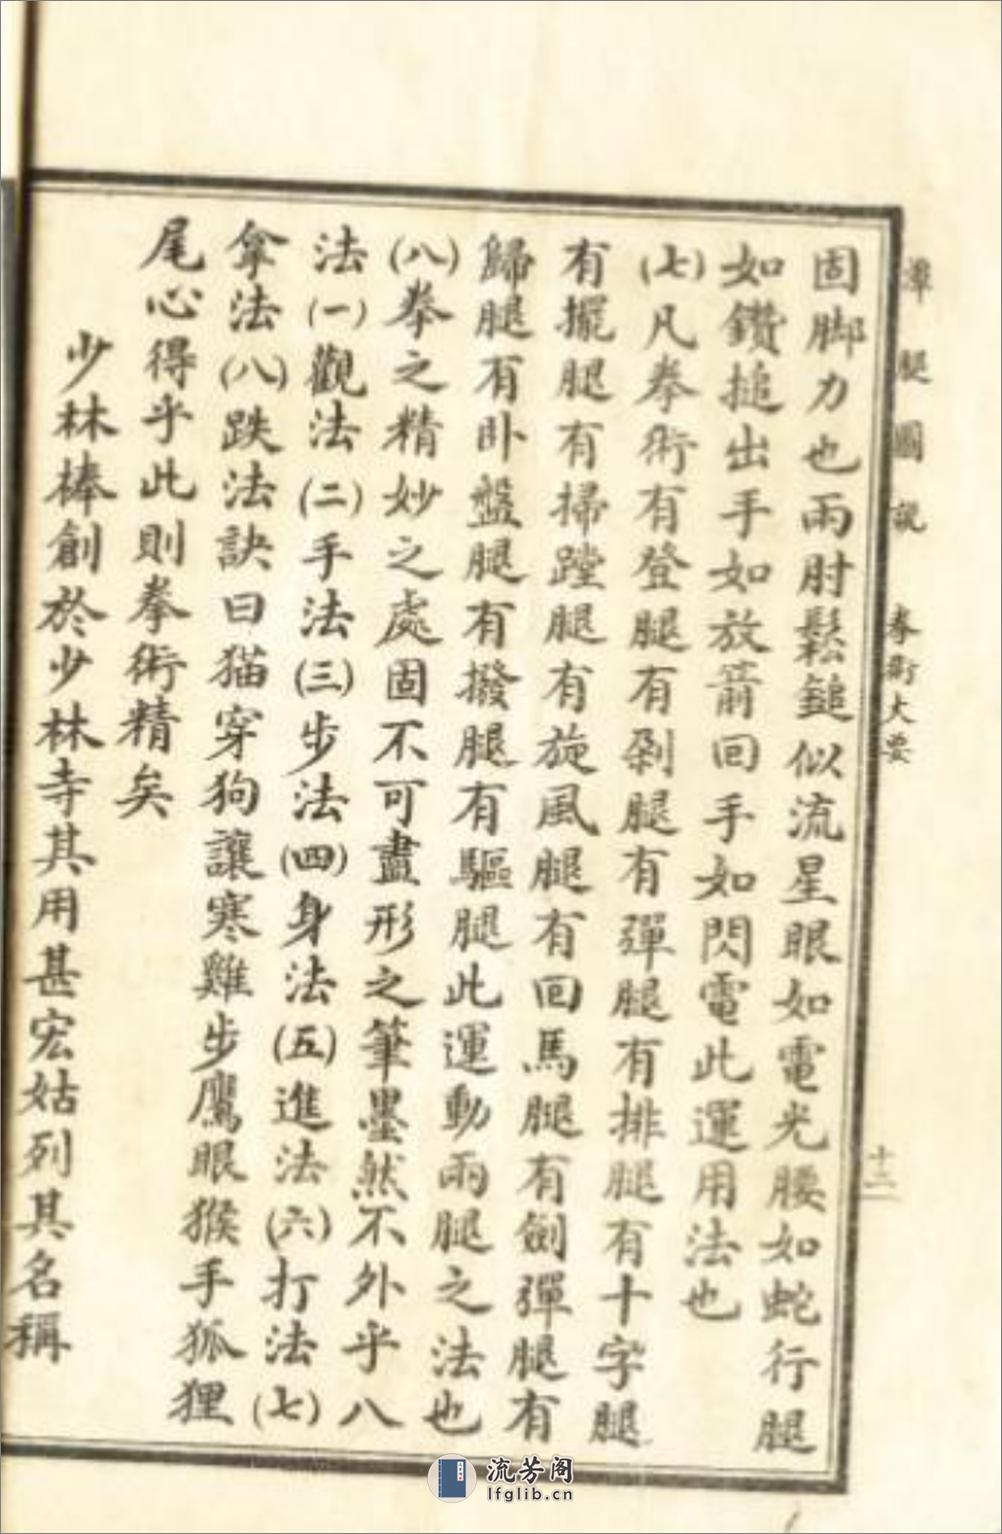 潭腿圖說 拳術大要 十二
固脚力也兩肘鬆鎚似流星眼如電光腰如蛇行腿
如鑽搥出手如放箭回手如閃電此運用法也
(七)凡拳術有登腿有剁腿有彈腿有排腿有十字腿
有擺腿有掃蹚腿有旋風腿有回馬腿有劍彈腿有
歸腿有卧盤腿有撥腿有驅腿此運動兩腿之法也
(八)拳之精妙之處固不可盡形之筆墨然不外乎八
法(一)觀法(二)手法(三)步法(四)身法(五)進法(六)打法(七)
拿法(八)跌法訣曰猫穿狗讓寒雞步鷹眼猴手狐狸
尾心得乎此則拳術精矣
少林棒創於少林寺其用甚宏姑列其名稱
流芳阁
lfglib.cn